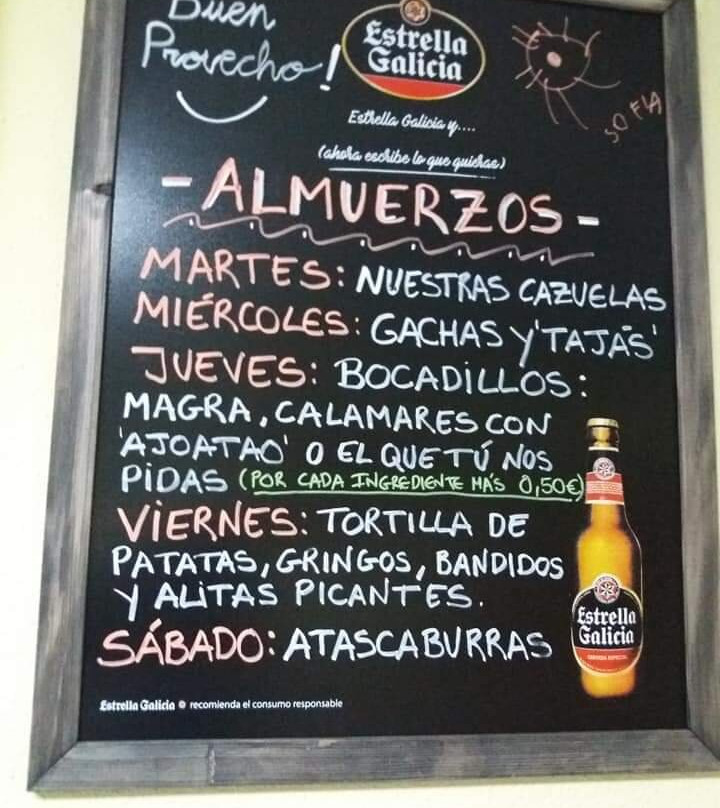 Buen
Provecho!
Estrella
Galicia
SOFIA
Estrella Galicia y....
(ahora escribe lo que quieras)
-ALMUERZOS-
MARTES: NUESTRAS CAZUELAS
MIÉRCOLES: GACHAS Y 'TAJÁS'
JUEVES: BOCADILLOS:
MAGRA, CALAMARES CON
'AJOATAO' O EL QUE TÚ NOS
PIDAS (POR CADA INGREDIENTE MÁS 0,50€)
VIERNES: TORTILLA DE
PATATAS, GRINGOS, BANDIDOS
Y ALITAS PICANTES.
SÁBADO: ATASCABURRAS
Estrella
Galicia
CERVEZA ESPECIAL
Estrella Galicia recomienda el consumo responsable